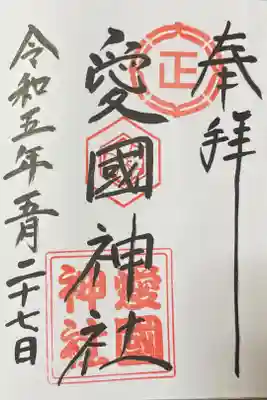 奉拝
愛國神社
令和五年五月二十七日
正
愛國
神社